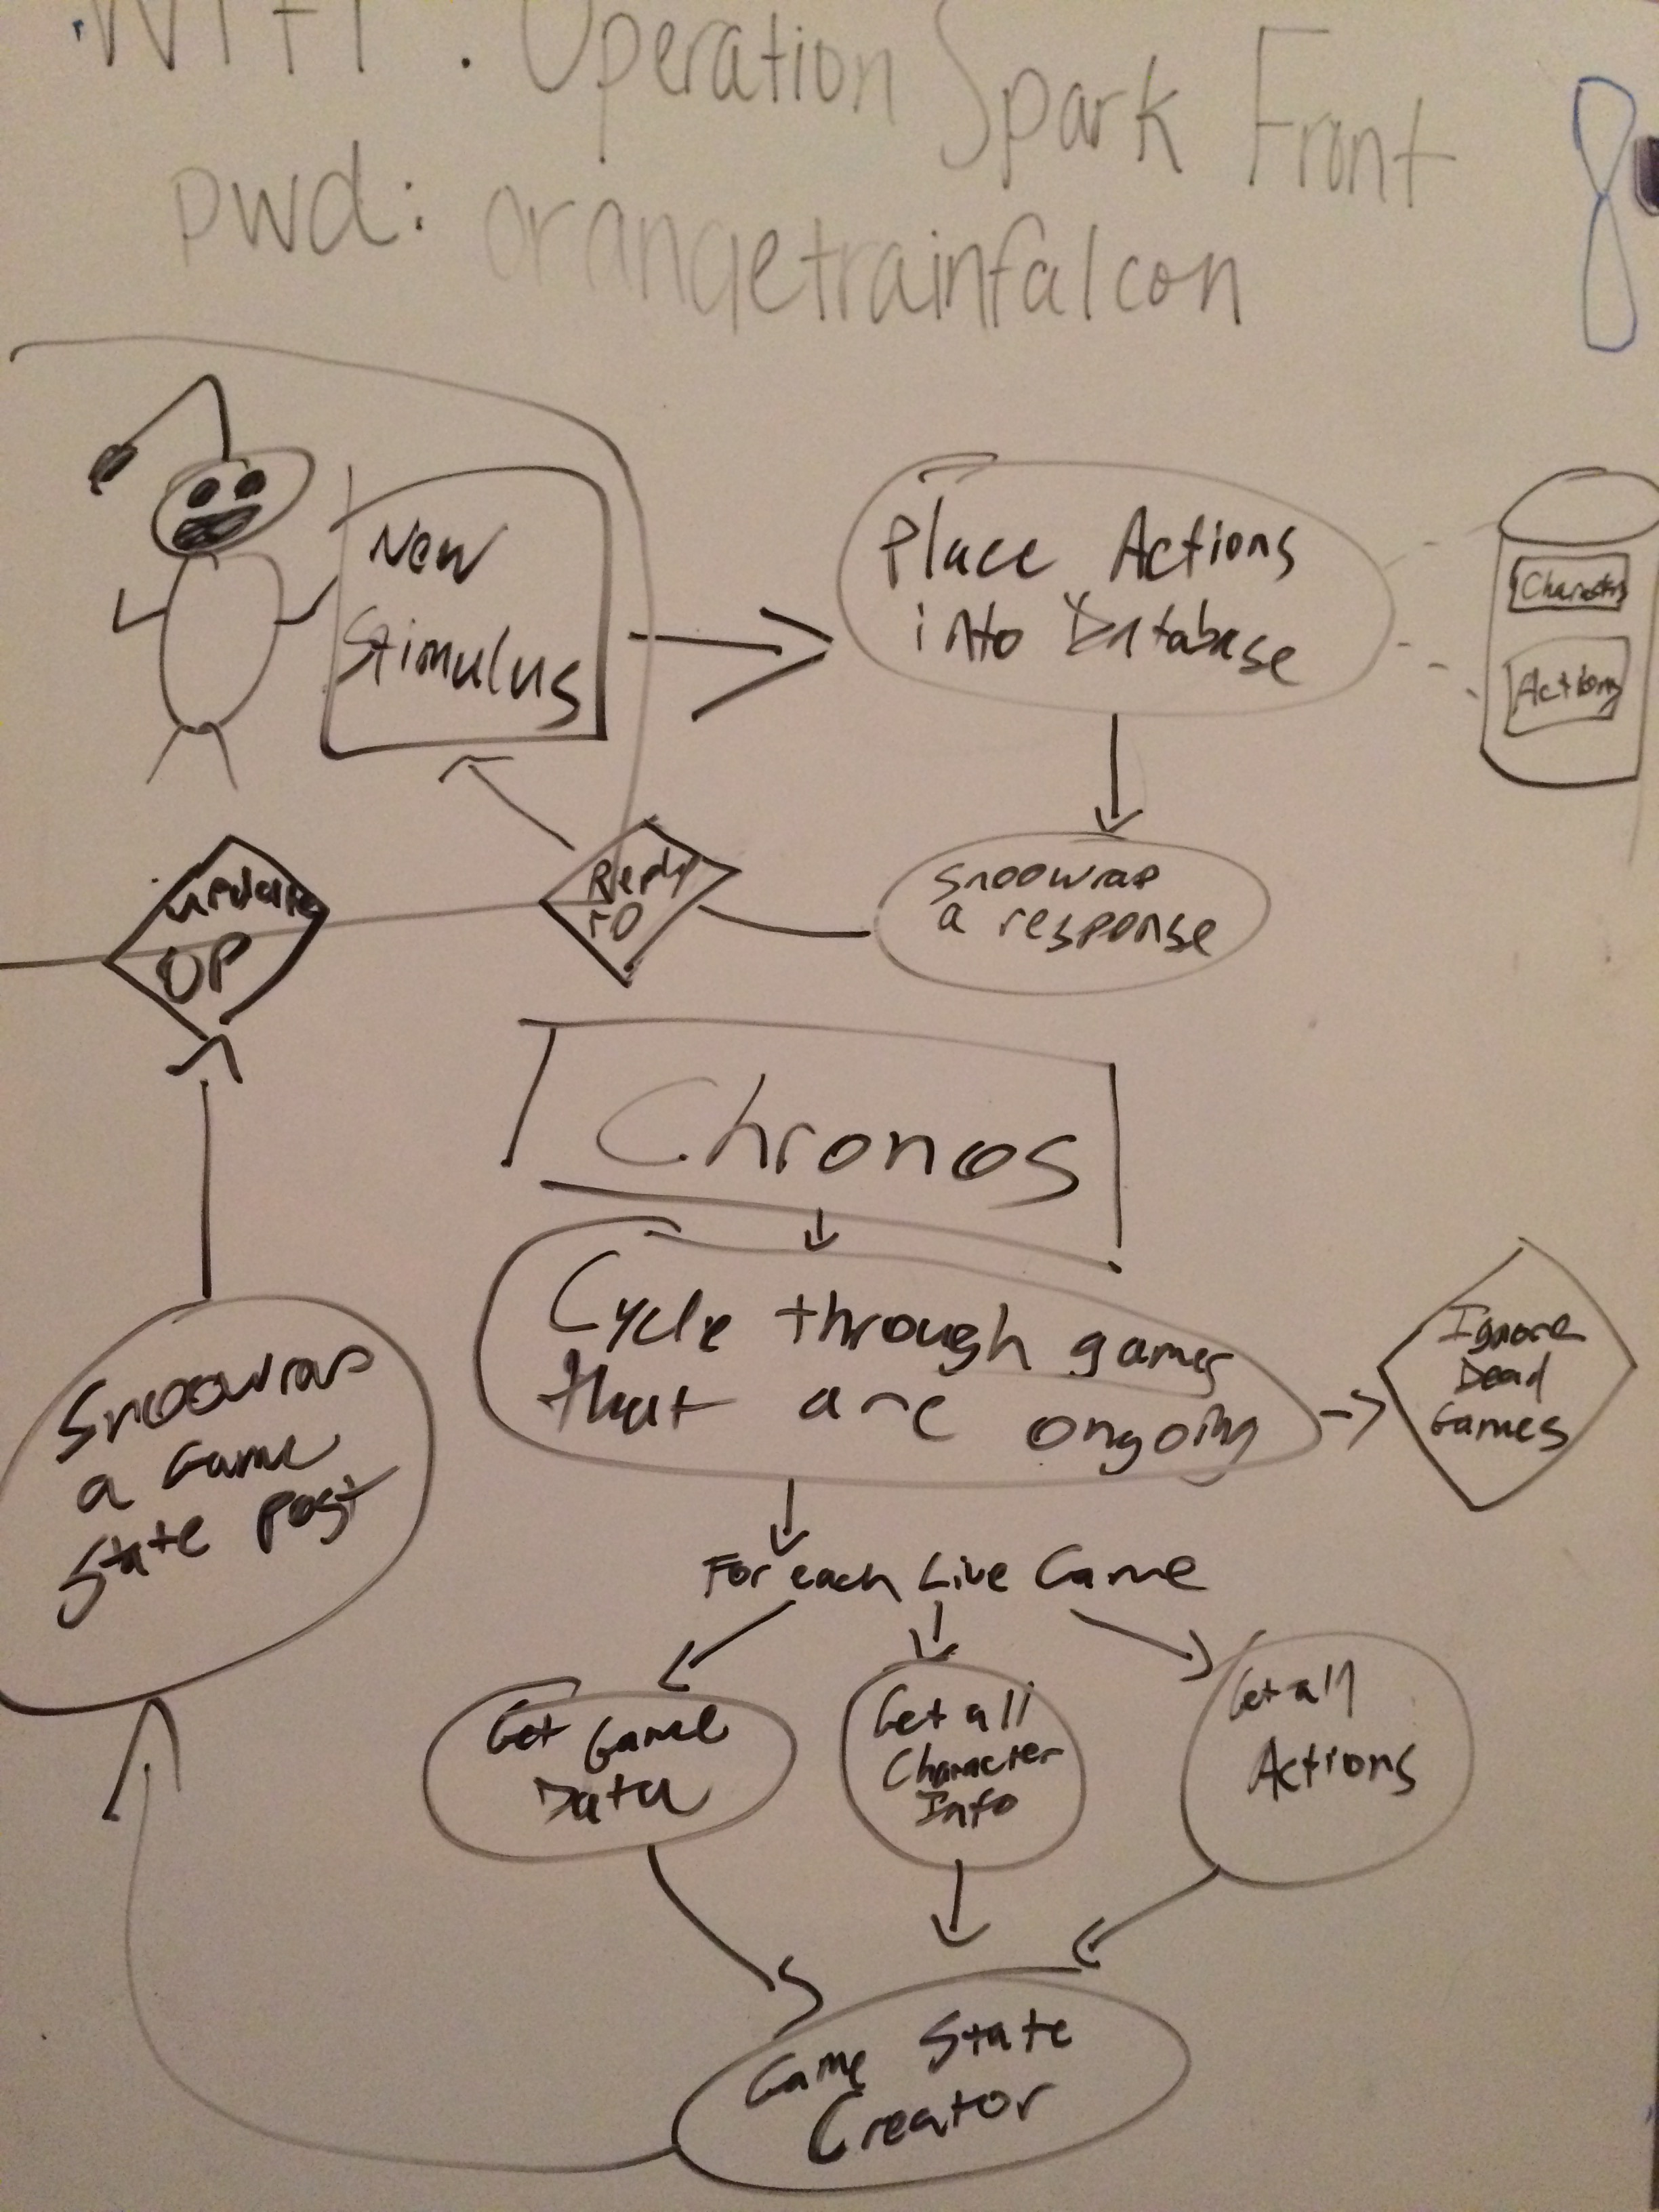 WIFI: Operation Spark Front
pwd: orangetrainfalcon
8
New
Stimulus
Place Actions
into Database
Actions
update
OP
Reply
TO
Snoowrap
a response
Chronos
Cycle through games
that are ongoing
Ignore
Dead
Games
Snoowrap
a Game
State post
For each Live Game
Get Game
Data
Get all
Character
Info
Get all
Actions
Game State
Creator